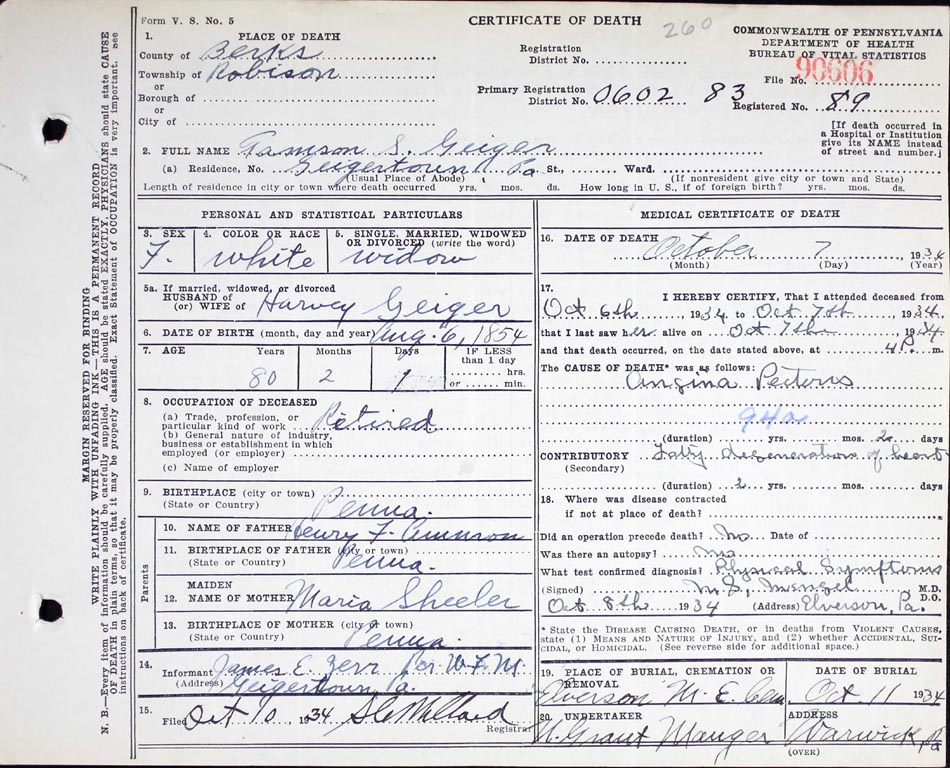 Form V. S. No. 5
CERTIFICATE OF DEATH
260
COMMONWEALTH OF PENNSYLVANIA
DEPARTMENT OF HEALTH
BUREAU OF VITAL STATISTICS
1. PLACE OF DEATH
County of Berks
Township of Robison
or
Borough of
or
City of
Registration
District No.
Primary Registration
District No. 0602 83
File No. 90606
Registered No. 89
[If death occurred in
a Hospital or Institution
give its NAME instead
of street and number.]
2. FULL NAME Tamson S. Geiger
(a) Residence, No. Geigertown, Pa. St., Ward.
(Usual Place of Abode) (If nonresident give city or town and State)
Length of residence in city or town where death occurred yrs. mos. ds. How long in U. S., if of foreign birth? yrs. mos. ds.
PERSONAL AND STATISTICAL PARTICULARS
3. SEX 4. COLOR OR RACE 5. SINGLE, MARRIED, WIDOWED
OR DIVORCED (write the word)
F. white widow
5a. If married, widowed, or divorced
HUSBAND of
(or) WIFE of Harvey Geiger
6. DATE OF BIRTH (month, day and year) Aug. 6, 1854
7. AGE Years Months Days IF LESS
than 1 day
hrs.
or min.
80 2 1
8. OCCUPATION OF DECEASED
(a) Trade, profession, or
particular kind of work Retired
(b) General nature of industry,
business or establishment in which
employed (or employer)
(c) Name of employer
9. BIRTHPLACE (city or town)
(State or Country) Penna.
Parents
10. NAME OF FATHER Henry F.
11. BIRTHPLACE OF FATHER (city or town)
(State or Country) Penna.
MAIDEN
12. NAME OF MOTHER Maria Sheeler
13. BIRTHPLACE OF MOTHER (city or town)
(State or Country) Penna.
14. Informant James E. Zerr Per W. F. M.
(Address) Geigertown, Pa.
15. Filed Oct 10, 1934
Registrar
MEDICAL CERTIFICATE OF DEATH
16. DATE OF DEATH October 7 1934
(Month) (Day) (Year)
17. I HEREBY CERTIFY, That I attended deceased from
Oct 6th, 1934 to Oct 7th, 1934.
that I last saw her alive on Oct 7th, 1934.
and that death occurred, on the date stated above, at 4P. m.
The CAUSE OF DEATH* was as follows:
Angina Pectoris
94a
(duration) yrs. mos. 2 days
CONTRIBUTORY Fatty degeneration of heart
(Secondary)
(duration) 2 yrs. mos. days
18. Where was disease contracted
if not at place of death?
Did an operation precede death? No Date of
Was there an autopsy? No
What test confirmed diagnosis? Physical Symptoms
(Signed) M. S. Menzel M.D.
D.O.
Oct 8th, 1934 (Address) Elverson, Pa.
* State the DISEASE CAUSING DEATH, or in deaths from VIOLENT CAUSES,
state (1) MEANS AND NATURE OF INJURY, and (2) whether ACCIDENTAL, SUI-
CIDAL, or HOMICIDAL. (See reverse side for additional space.)
19. PLACE OF BURIAL, CREMATION OR
REMOVAL DATE OF BURIAL
Elverson M. E. Cem. Oct. 11 1934
20. UNDERTAKER ADDRESS
U. Grant Mauger Warwick, Pa
(OVER)
MARGIN RESERVED FOR BINDING
WRITE PLAINLY WITH UNFADING INK—THIS IS A PERMANENT RECORD
N. B.—Every item of information should be carefully supplied. AGE should be stated EXACTLY. PHYSICIANS should state CAUSE
OF DEATH in plain terms, so that it may be properly classified. Exact Statement of OCCUPATION is very important. See
instructions on back of certificate.